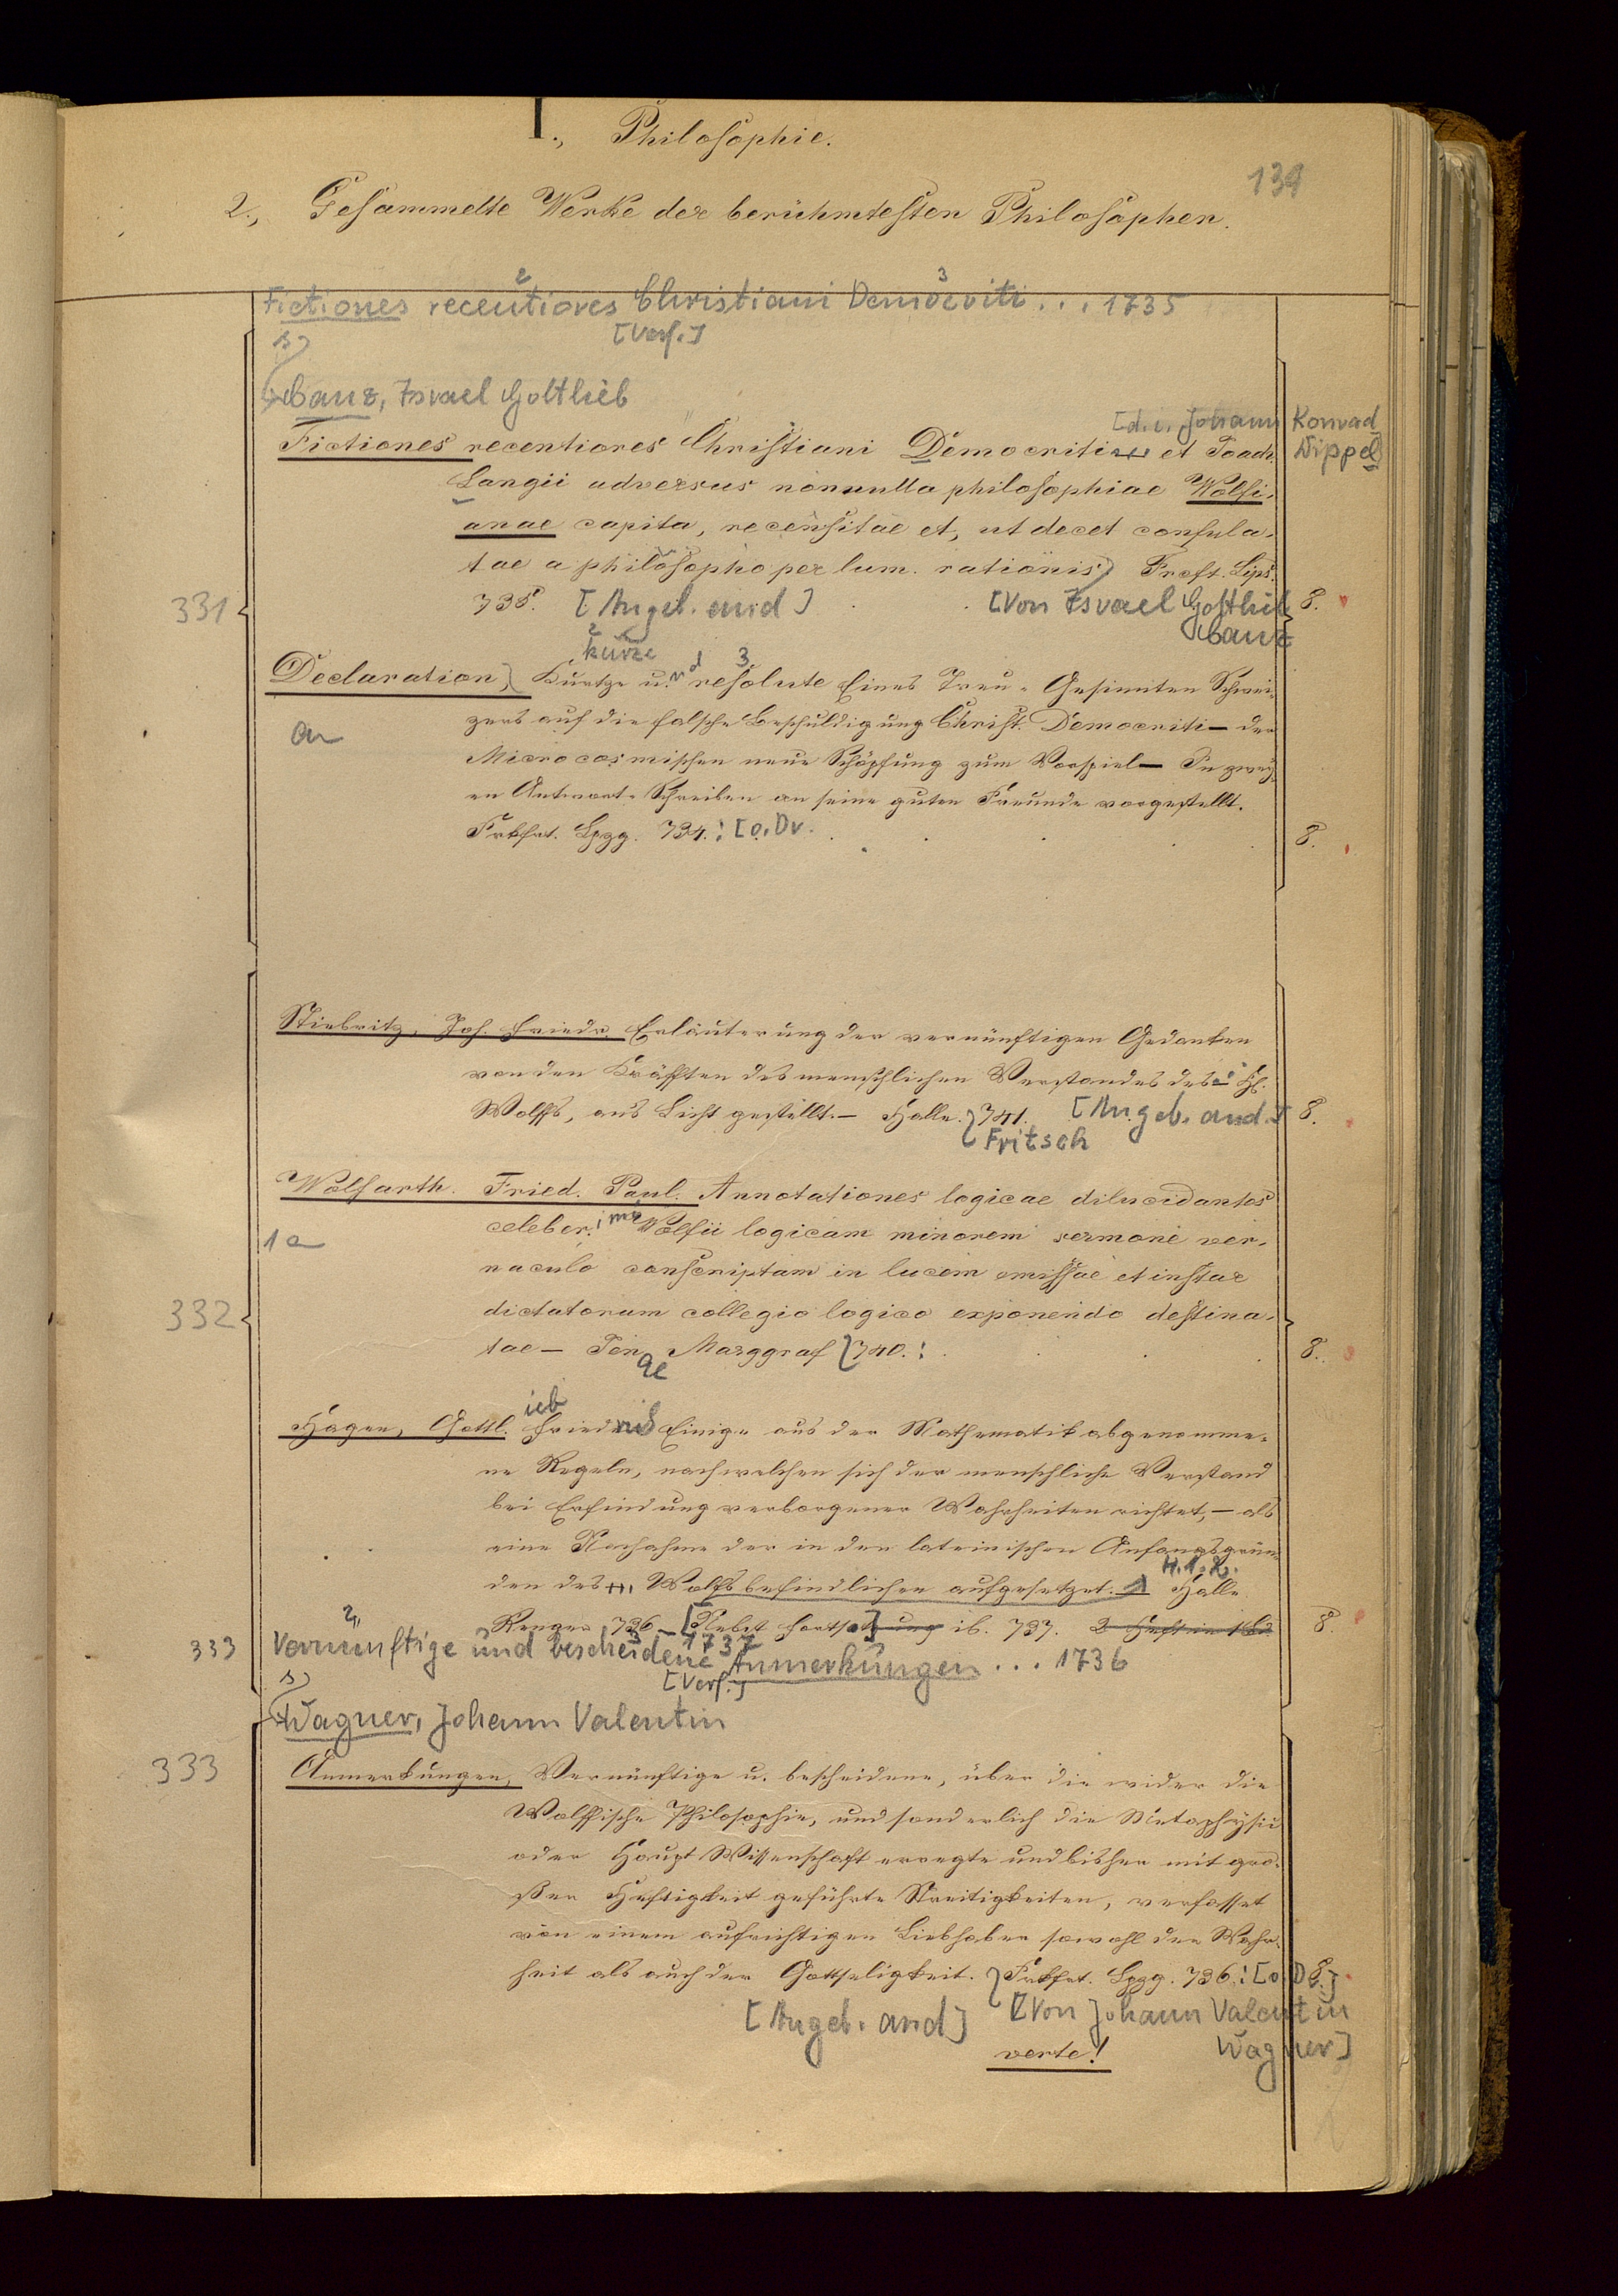 I., Philosophie.
139
2., Gesammelte Werke der berühmtesten Philosophen.
Fictiones recentiores Christiani Democriti... 1735
[Verf.]
Canz, Israel Gottlieb
[d. i. Johann Konrad
Dippel]
Fictiones recentiores Christiani Democriti et Joach.
Langii adversus nonnulla philosophiae Wolfi-
anae capita, recensitae et, ut decet confuta-
tae a philosopho per lum. rationis) Frcft. Lips.
331
735. [Angeb. an:d] [Von Israel Gottlieb 8.
Canz
kurze
Declaration, Kurtze u. resolute Eines Treu-Gesinnten Schwei-
zers auf die falsche Beschuldigung Christ. Democriti – der
an
Microcosmischen neue Schöpfung zum Vorspiel – In zwey-
en Antwort-Schreiben an seine guten Freunde vorgestellt.
Frkfrt. Lpzg. 734.: [o. Dr. 8.
Stiebritz, Joh. Friedr. Erläuterung der vernünftigen Gedanken
von den Kräfften des menschlichen Verstandes des H.
Wolffs, ans Licht gestellt. – Halle. 741. [Angeb. and.] 8.
Fritsch
Wolfarth. Fried. Paul. Annotationes logicae dilucidantes
celeber. Wolfii logicam minorem sermone ver-
1 an
naculo conscriptam in lucem emissae et instar
332
dictatorum collegio logico exponendo destina-
tae – Jen Marggraf 740.: 8.
ae
ieb
Hagen, Gottl. Friedrich Einige aus der Mathematik abgenomme-
ne Regeln, nach welchen sich der menschliche Verstand
bei Erfindung verborgener Wahrheiten richtet, – als
eine Nachahme der in den lateinischen Anfangsgrün-
H. 1. 2.
den des H. Wolfs befindlichen aufgesetzet. Halle
Renger 736 – [Nebst Fortsetzung ib. 737. 2 Hefte in 1 Bd. 8.
1737
333 Vernünftige und bescheidene Anmerkungen... 1736
[Verf.]
Wagner, Johann Valentin
333
Anmerkungen, Vernünftige u. bescheidene, über die wider die
Wolffische Philosophie, und sonderlich die Metaphysic
oder Haupt Wissenschaft erregte und bisher mit gro-
ßer Heftigkeit geführte Streitigkeiten, verfasset
von einem aufrichtigen Liebhaber sowohl der Wahr-
heit als auch der Gottseligkeit. Frkfrt. Lpzg. 736.: [o. D 8.]
[Angeb. and] [Von Johann Valentin
Wagner]
verte!